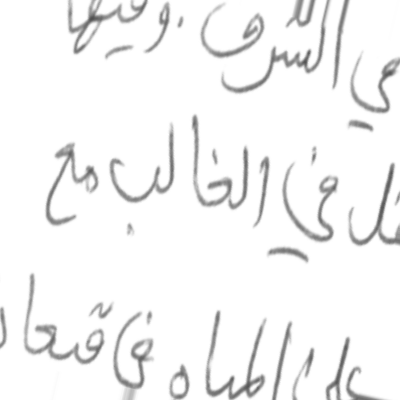 في الشرق . وفيها
في الغالب مع
على المياه في قيعا